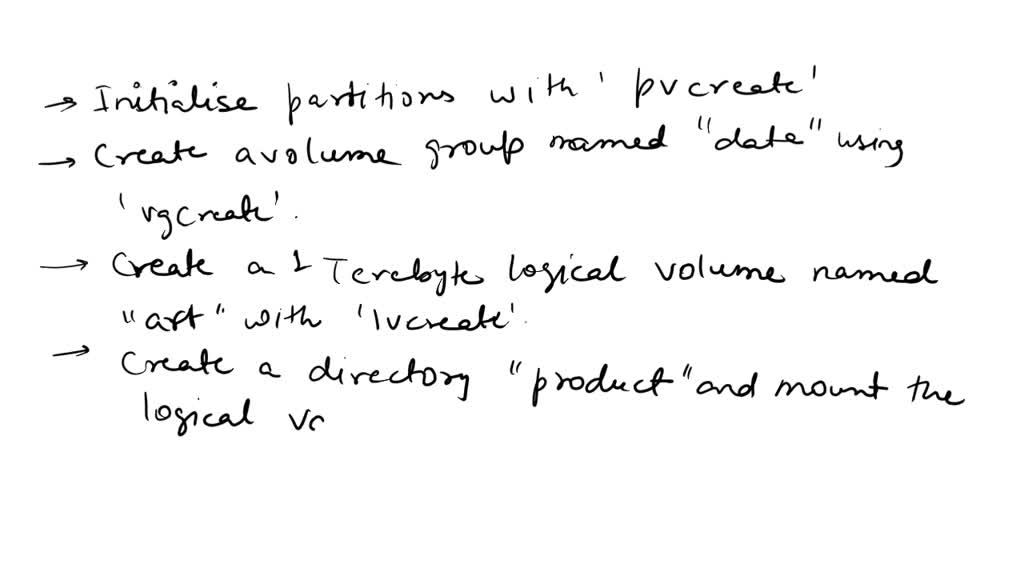 → Initialise partitions with 'pvcreate'
→ Create a volume group named "date" using
'vgcreate'.
→ Create a 1 Terebyte logical volume named
"art" with 'lvcreate'.
→ Create a directory "product" and mount the
logical vo